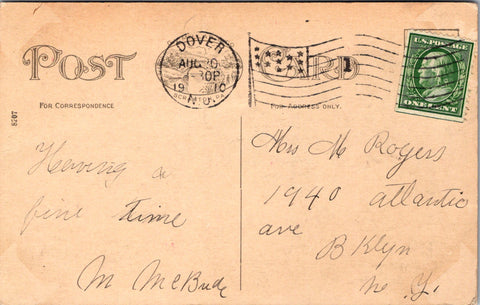 POST CARD
DOVER
AUG
1910
N.J.
U.S. POSTAGE
ONE CENT
FOR CORRESPONDENCE
FOR ADDRESS ONLY.
8207
Having a
fine time
M McBride
Mrs M Rogers
1940 atlantic
ave
BKlyn
N. Y.